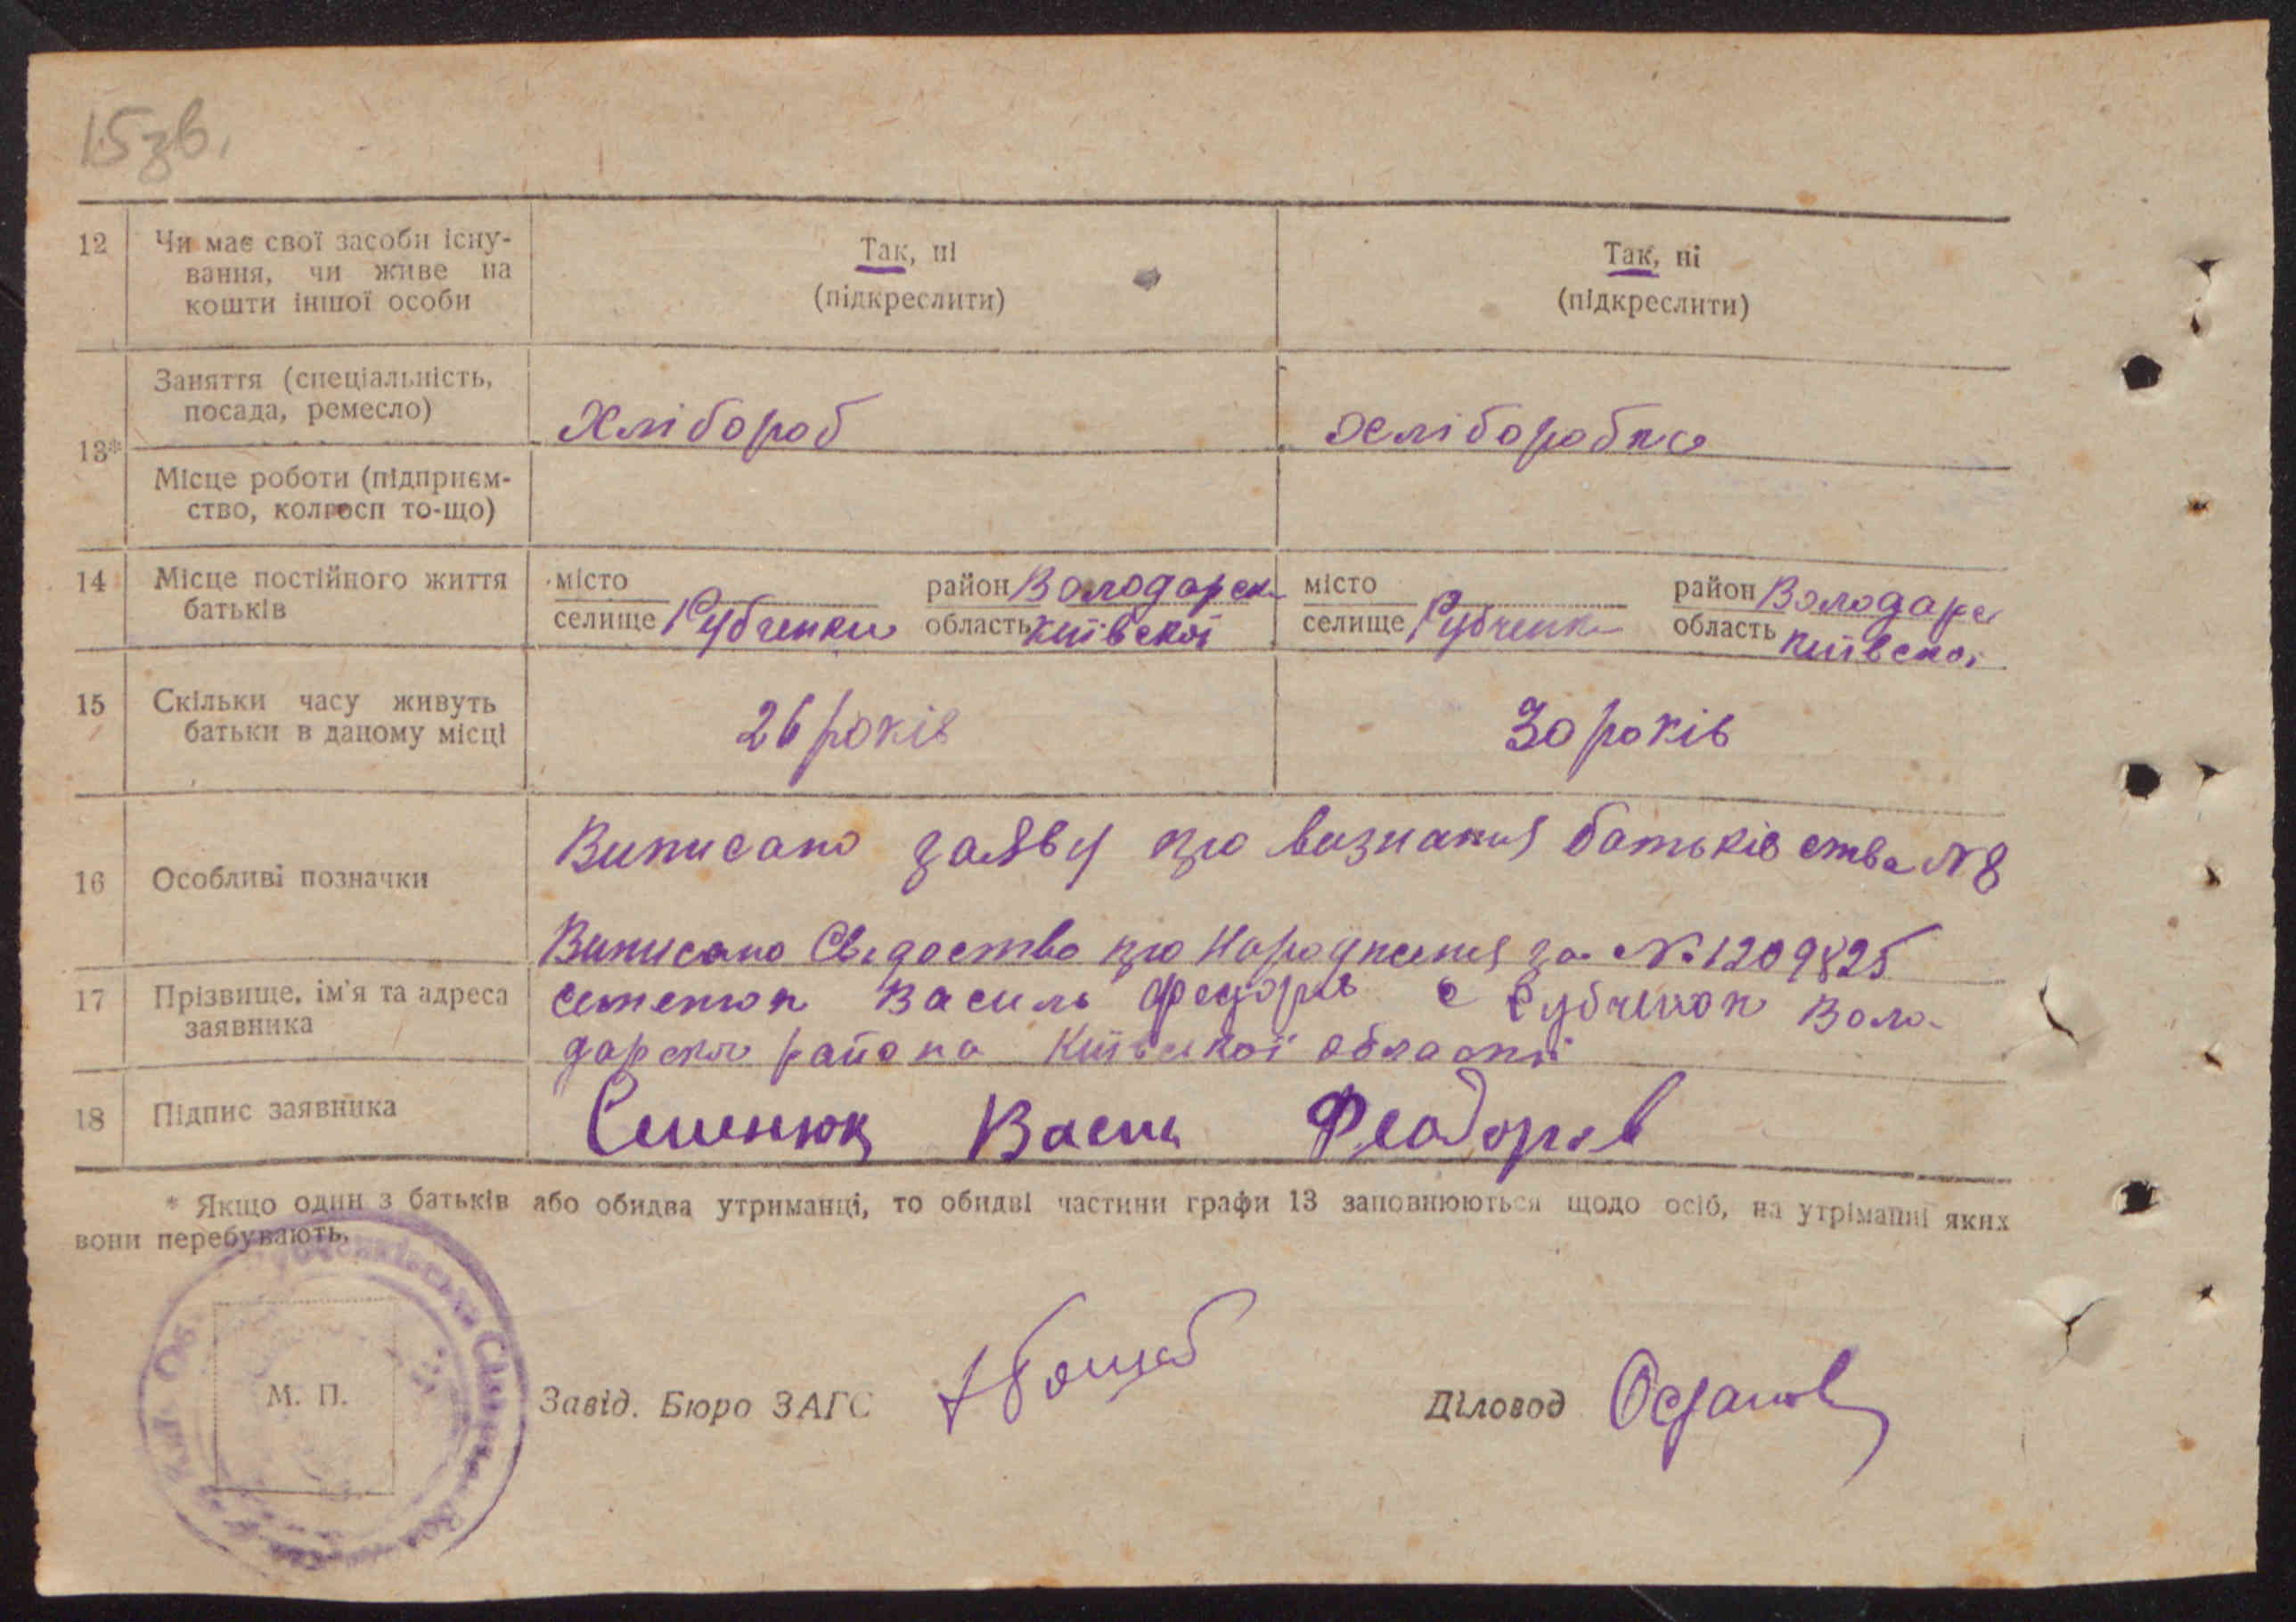 15зв.
12 Чи має свої засоби існу-
вання, чи живе на
кошти іншої особи
Так, ні
(підкреслити)
Так, ні
(підкреслити)
13*
Заняття (спеціальність,
посада, ремесло)
Хлібороб
хліборобка
Місце роботи (підприєм-
ство, колгосп то-що)
14 Місце постійного життя
батьків
місто
селище Рубченки
район Володарск
область київскої
місто
селище Рубченки
район Володарс
область київскої
15 Скільки часу живуть
батьки в даному місці
26 років
30 років
16 Особливі позначки
Виписано заяву про визнання батьківства № 8
Виписано Свідоство про народження за № 1209825
17 Прізвище, ім'я та адреса
заявника
Семенюк Василь Федорів с Рубченок Воло-
дарска района Київскої області
18 Підпис заявника
Семенюк Васи Феодорів
* Якщо один з батьків або обидва утриманці, то обидві частини графи 13 заповнюються щодо осіб, на утріманні яких
вони перебувають.
М. П.
Завід. Бюро ЗАГС
Діловод